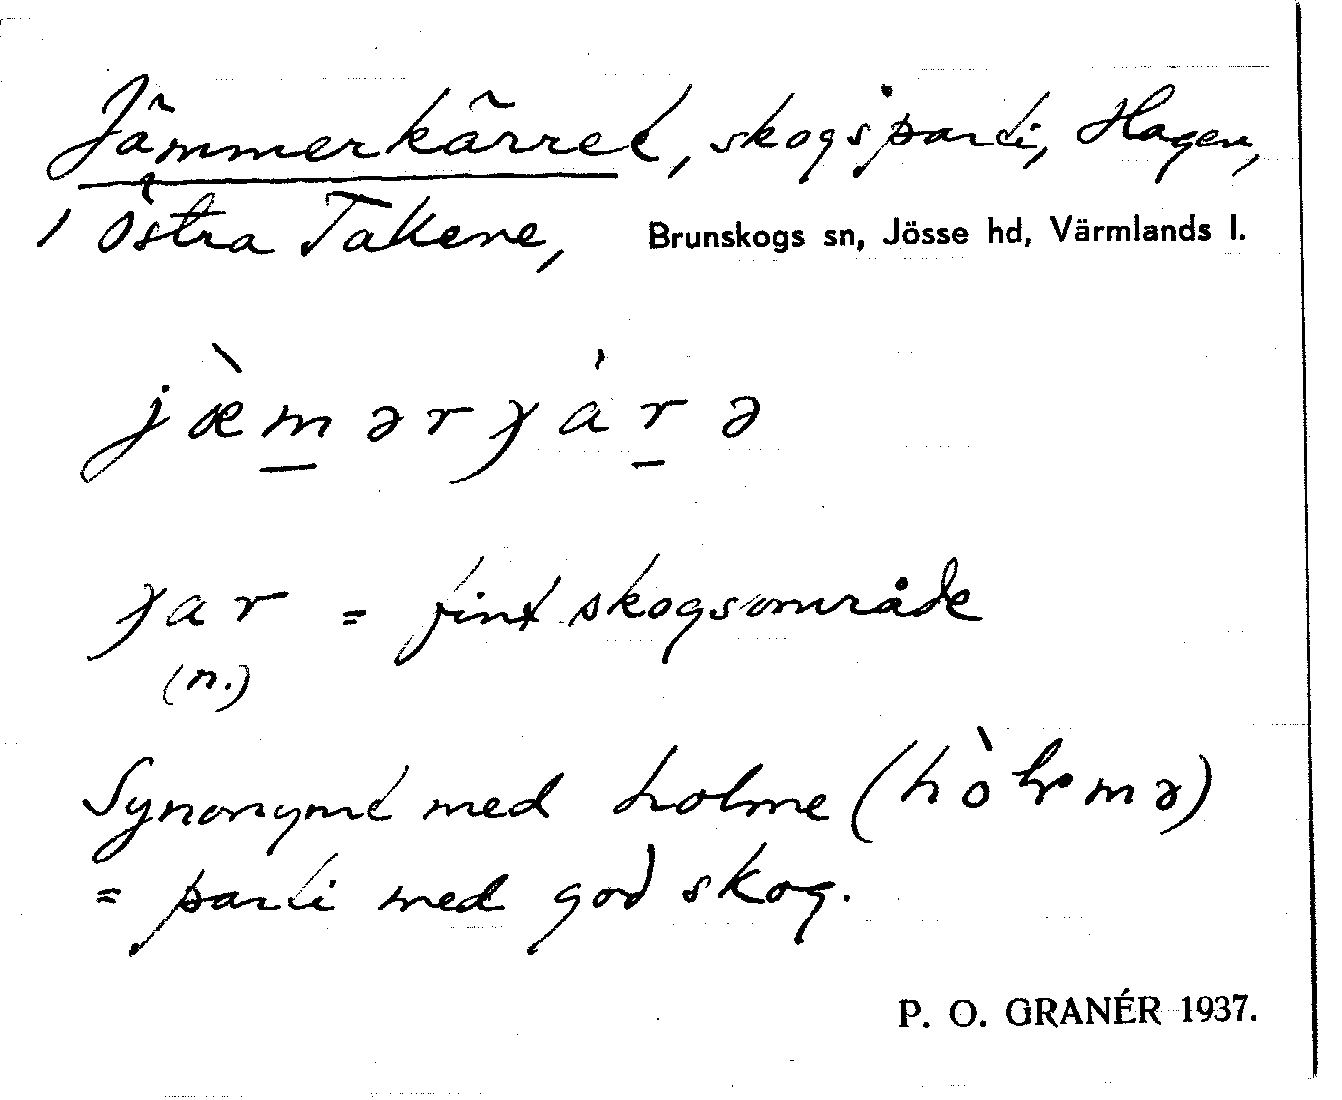 Jämmerkärret, skogsparti, Hagen,
1 Östra Takene, Brunskogs sn, Jösse hd, Värmlands l.
jæ̀m̲ərɟár̲ə
ɟar = fint skogsområde
(n.)
Synonymt med holme (hòłmə)
= parti med god skog.
P. O. GRANÉR 1937.